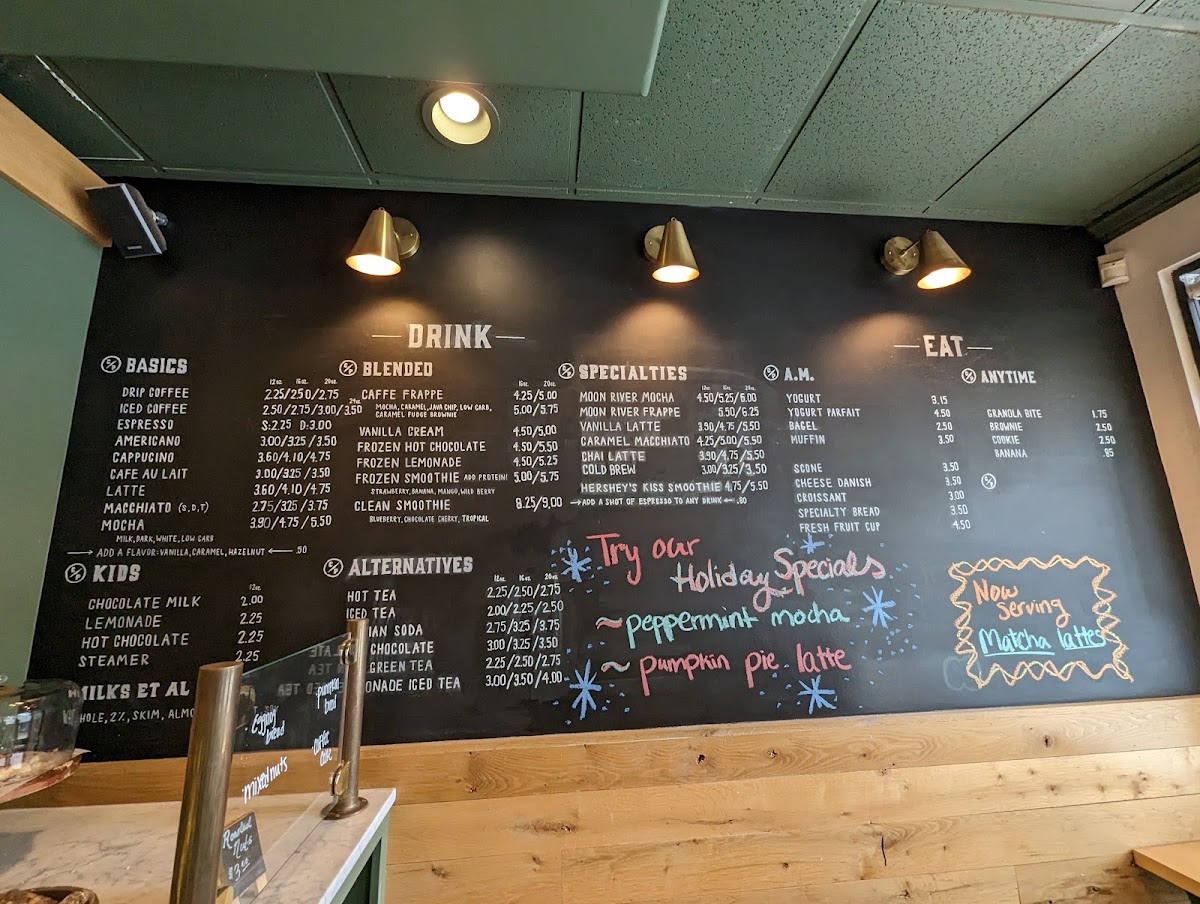 DRINK
BASICS
12oz. 16oz. 20oz.
DRIP COFFEE 2.25/2.50/2.75
24oz.
ICED COFFEE 2.50/2.75/3.00/3.50
ESPRESSO S:2.25 D:3.00
AMERICANO 3.00/3.25/3.50
CAPPUCINO 3.60/4.10/4.75
CAFE AU LAIT 3.00/3.25/3.50
LATTE 3.60/4.10/4.75
MACCHIATO (S,D,T) 2.75/3.25/3.75
MOCHA 3.90/4.75/5.50
MILK, DARK, WHITE, LOW CARB
ADD A FLAVOR: VANILLA, CARAMEL, HAZELNUT .50
KIDS
12oz.
CHOCOLATE MILK 2.00
LEMONADE 2.25
HOT CHOCOLATE 2.25
STEAMER 2.25
MILKS ET AL
HOLE, 2%, SKIM, ALMO
BLENDED
16oz. 20oz.
CAFFE FRAPPE 4.25/5.00
MOCHA, CARAMEL, JAVA CHIP, LOW CARB, 5.00/5.75
CARAMEL FUDGE BROWNIE
VANILLA CREAM 4.50/5.00
FROZEN HOT CHOCOLATE 4.50/5.50
FROZEN LEMONADE 4.50/5.25
FROZEN SMOOTHIE ADD PROTEIN! 5.00/5.75
STRAWBERRY, BANANA, MANGO, WILD BERRY
CLEAN SMOOTHIE 8.25/9.00
BLUEBERRY, CHOCOLATE CHERRY, TROPICAL
ALTERNATIVES
12oz. 16oz. 20oz.
HOT TEA 2.25/2.50/2.75
ICED TEA 2.00/2.25/2.50
IAN SODA 2.75/3.25/3.75
CHOCOLATE 3.00/3.25/3.50
GREEN TEA 2.25/2.50/2.75
ONADE ICED TEA 3.00/3.50/4.00
SPECIALTIES
12oz. 16oz. 20oz.
MOON RIVER MOCHA 4.50/5.25/6.00
MOON RIVER FRAPPE 5.50/6.25
VANILLA LATTE 3.90/4.75/5.50
CARAMEL MACCHIATO 4.25/5.00/5.50
CHAI LATTE 3.90/4.75/5.50
COLD BREW 3.00/3.25/3.50
HERSHEY'S KISS SMOOTHIE 4.75/5.50
ADD A SHOT OF ESPRESSO TO ANY DRINK .80
Try our
Holiday Specials
~ peppermint mocha
~ pumpkin pie latte
EAT
A.M.
YOGURT 3.15
YOGURT PARFAIT 4.50
BAGEL 2.50
MUFFIN 3.50
SCONE 3.50
CHEESE DANISH 3.50
CROISSANT 3.00
SPECIALTY BREAD 3.50
FRESH FRUIT CUP 4.50
ANYTIME
GRANOLA BITE 1.75
BROWNIE 2.50
COOKIE 2.50
BANANA .85
Now
serving
Matcha lattes
Eggnog
bread
pumpkin
bread
coffee
cake
mixed nuts
Roasted
Nuts